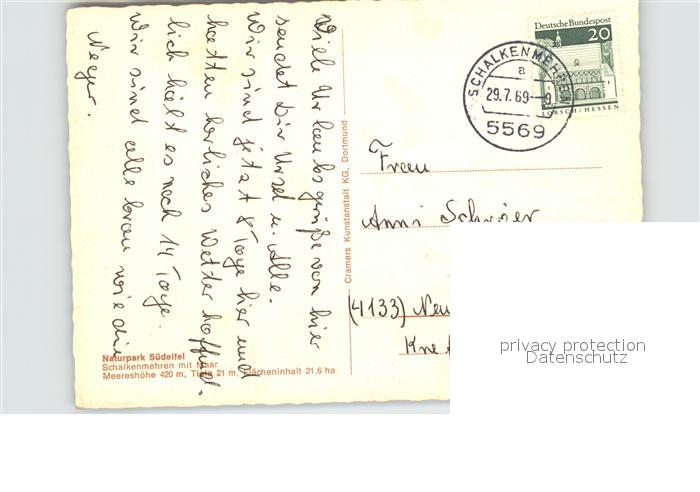 Viele Urlaubsgrüße von hier
sendet Dir Ursel u. Alle.
Wir sind jetzt 8 Tage hier und
hatten herliches Wetter hoffend-
lich hält es noch 14 Tage.
Wir sind alle braun wie die
Neger.
Naturpark Südeifel
Schalkenmehren mit Maar
Meereshöhe 420 m, Tiefe 21 m, Flächeninhalt 21,6 ha
Cramers Kunstanstalt KG, Dortmund
Deutsche Bundespost
20
LORSCH/HESSEN
SCHALKENMEHREN
a
29.7.69-9
5569
Frau
Anni Schröer
(4133) Neu
privacy protection
Datenschutz